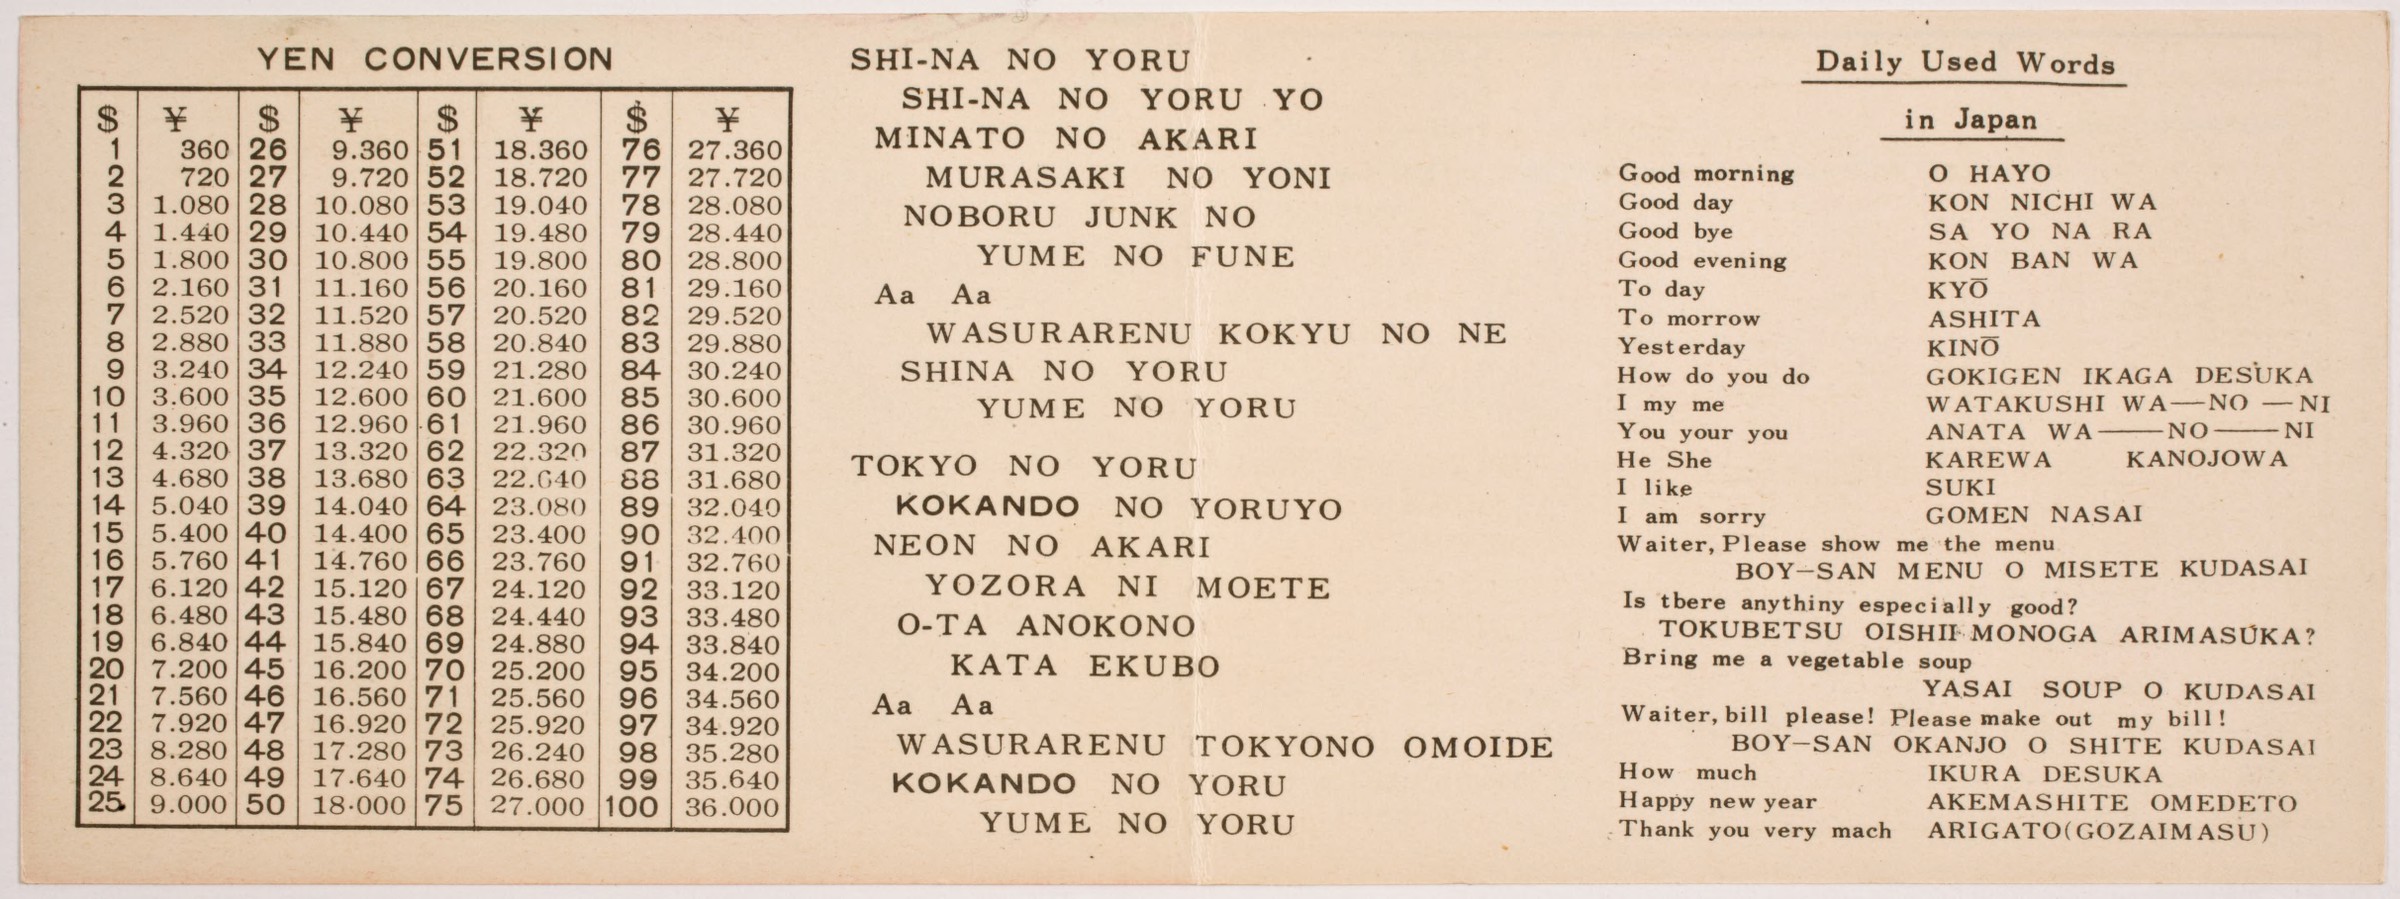 YEN CONVERSION
$ ¥ $ ¥ $ ¥ $ ¥
1 360 26 9.360 51 18.360 76 27.360
2 720 27 9.720 52 18.720 77 27.720
3 1.080 28 10.080 53 19.040 78 28.080
4 1.440 29 10.440 54 19.480 79 28.440
5 1.800 30 10.800 55 19.800 80 28.800
6 2.160 31 11.160 56 20.160 81 29.160
7 2.520 32 11.520 57 20.520 82 29.520
8 2.880 33 11.880 58 20.840 83 29.880
9 3.240 34 12.240 59 21.280 84 30.240
10 3.600 35 12.600 60 21.600 85 30.600
11 3.960 36 12.960 61 21.960 86 30.960
12 4.320 37 13.320 62 22.320 87 31.320
13 4.680 38 13.680 63 22.640 88 31.680
14 5.040 39 14.040 64 23.080 89 32.040
15 5.400 40 14.400 65 23.400 90 32.400
16 5.760 41 14.760 66 23.760 91 32.760
17 6.120 42 15.120 67 24.120 92 33.120
18 6.480 43 15.480 68 24.440 93 33.480
19 6.840 44 15.840 69 24.880 94 33.840
20 7.200 45 16.200 70 25.200 95 34.200
21 7.560 46 16.560 71 25.560 96 34.560
22 7.920 47 16.920 72 25.920 97 34.920
23 8.280 48 17.280 73 26.240 98 35.280
24 8.640 49 17.640 74 26.680 99 35.640
25 9.000 50 18.000 75 27.000 100 36.000
SHI-NA NO YORU
SHI-NA NO YORU YO
MINATO NO AKARI
MURASAKI NO YONI
NOBORU JUNK NO
YUME NO FUNE
Aa Aa
WASURARENU KOKYU NO NE
SHINA NO YORU
YUME NO YORU
TOKYO NO YORU
KOKANDO NO YORUYO
NEON NO AKARI
YOZORA NI MOETE
O-TA ANOKONO
KATA EKUBO
Aa Aa
WASURARENU TOKYONO OMOIDE
KOKANDO NO YORU
YUME NO YORU
Daily Used Words
in Japan
Good morning O HAYO
Good day KON NICHI WA
Good bye SA YO NA RA
Good evening KON BAN WA
To day KYŌ
To morrow ASHITA
Yesterday KINŌ
How do you do GOKIGEN IKAGA DESUKA
I my me WATAKUSHI WA—NO—NI
You your you ANATA WA—NO—NI
He She KAREWA KANOJOWA
I like SUKI
I am sorry GOMEN NASAI
Waiter, Please show me the menu
BOY-SAN MENU O MISETE KUDASAI
Is tbere anythiny especially good?
TOKUBETSU OISHII MONOGA ARIMASUKA?
Bring me a vegetable soup
YASAI SOUP O KUDASAI
Waiter, bill please! Please make out my bill!
BOY-SAN OKANJO O SHITE KUDASAI
How much IKURA DESUKA
Happy new year AKEMASHITE OMEDETO
Thank you very mach ARIGATO(GOZAIMASU)